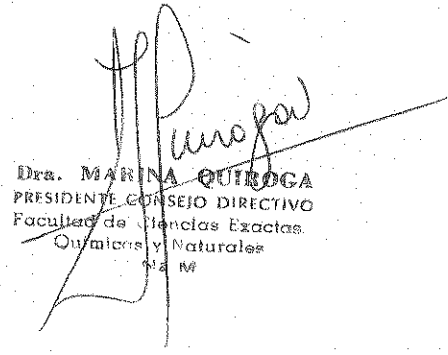 Quiroga
Dra. MARINA QUIROGA
PRESIDENTE CONSEJO DIRECTIVO
Facultad de Ciencias Exactas
Químicas y Naturales